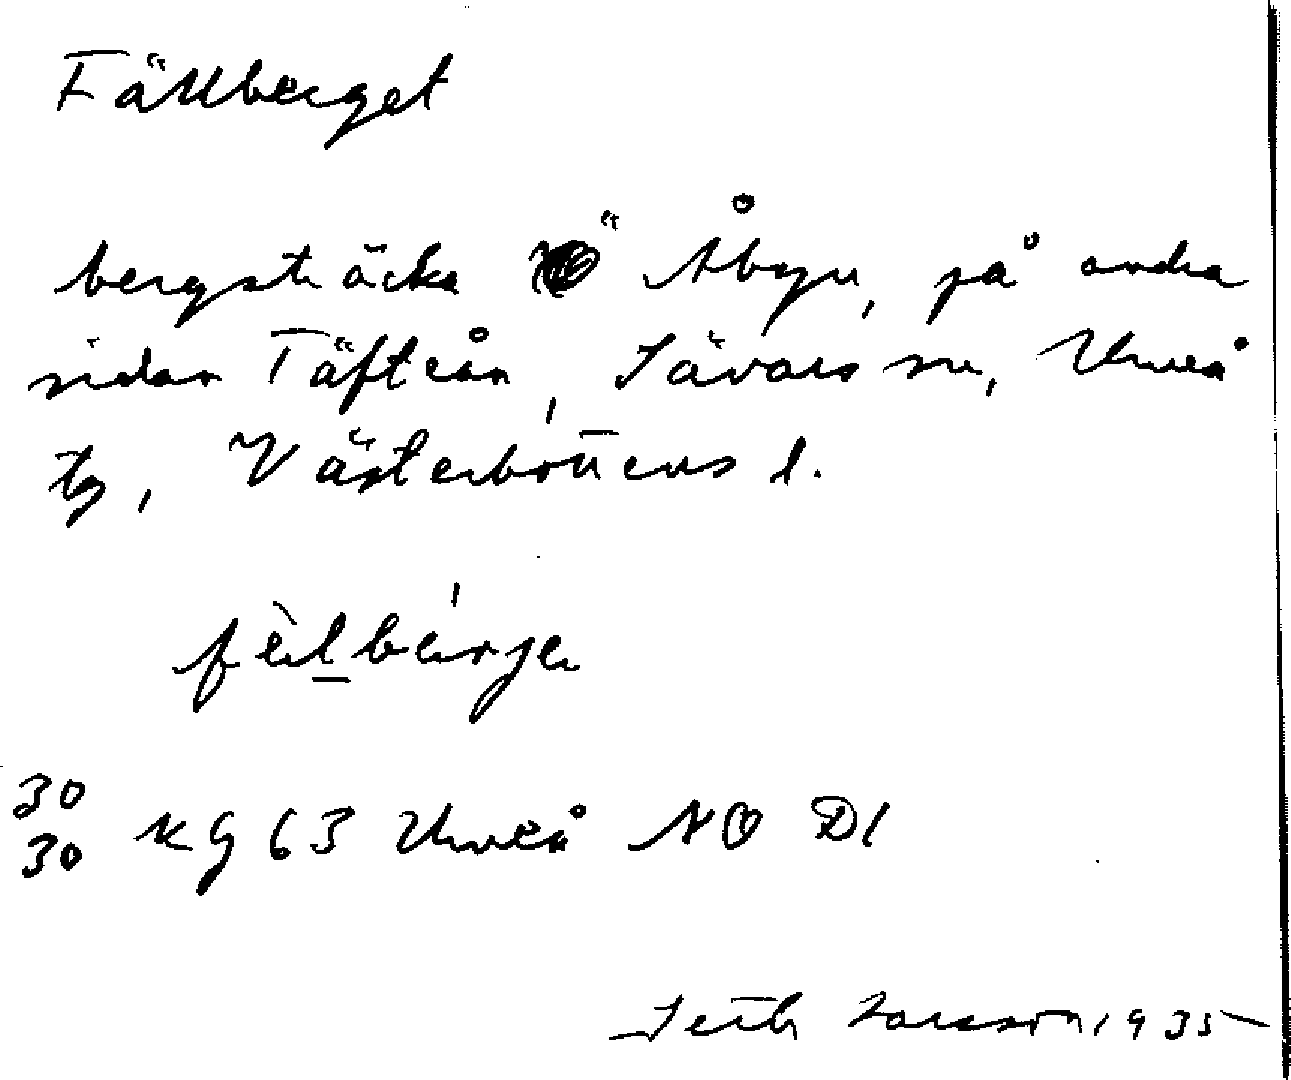 Fällberget
bergsträcka Ö Åbyn, på andra
sidan Täfteån, Sävars sn, Umeå
tg, Västerbottens l.
fèlbérje
30
30 KG 63 Umeå NO D1
Seth Larsson 1935